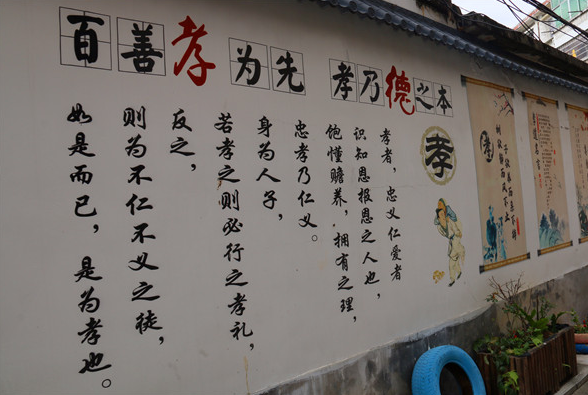 百善孝为先
孝乃德之本
孝者，忠义仁爱者
识知恩报恩之人也，
饱懂赡养，拥有之理，
忠孝乃仁义。
身为人子，
若孝之则必行之孝礼，
反之，
则为不仁不义之徒，
如是而已，是为孝也。
孝
子欲养而亲不待
树欲静而风不止
孝